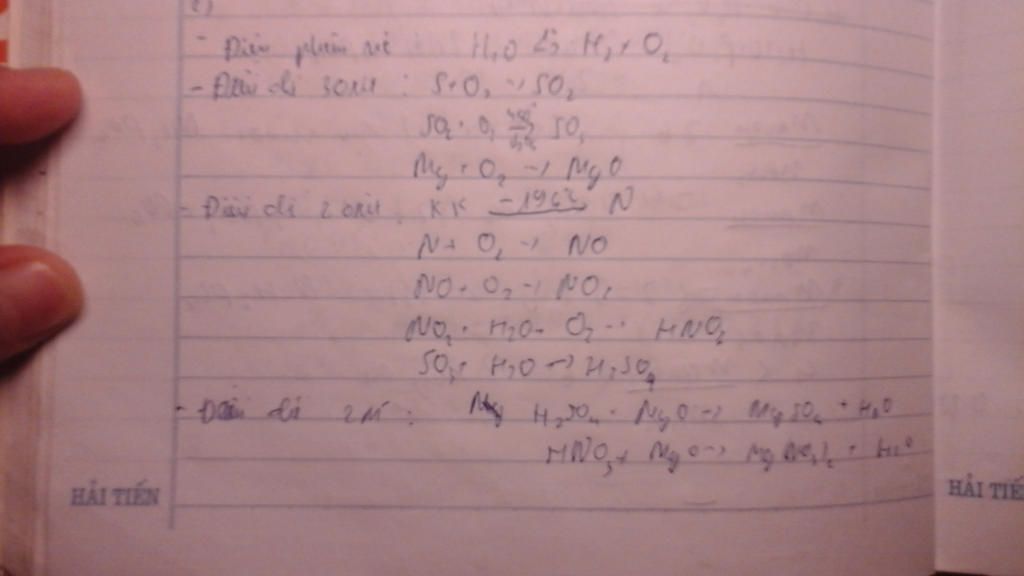 c)
- Điện phân nước H2O → H2 + O2
- Điều chế 3 oxit : S + O2 → SO2
SO2 + O2 → SO3
Mg + O2 → MgO
- Điều chế 2 axit : KK -196°C N
N + O2 → NO
NO + O2 → NO2
NO2 + H2O + O2 → HNO3
SO3 + H2O → H2SO4
- Điều chế 2 M : H2SO4 + MgO → MgSO4 + H2O
HNO3 + MgO → Mg(NO3)2 + H2O
HẢI TIẾN
HẢI TIẾ